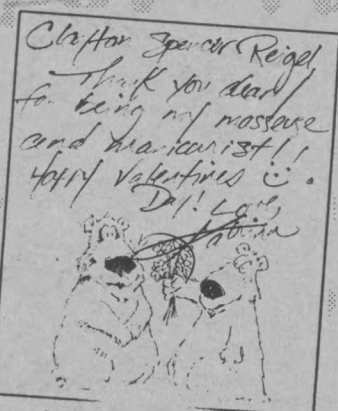 Clayton Spencer Reigel
Thank you dearly
for being my masseuse
and manicurist!!
Happy Valentines
Day! Love,